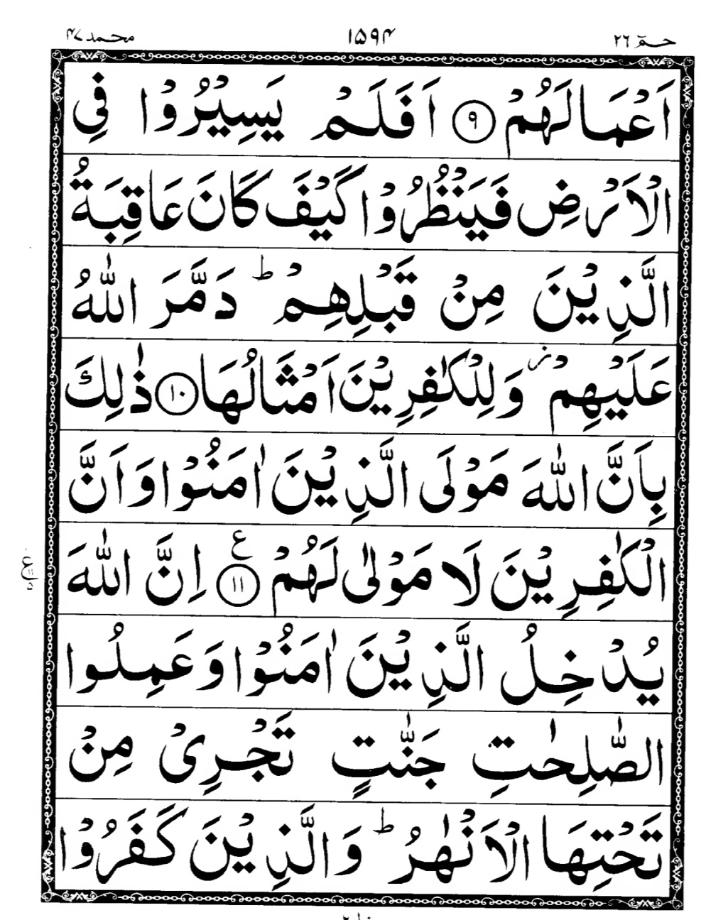 حٰمٓ ٢٦ ١٥٩٤ محمد ٤٧
اَعْمَالَهُمْ ۝٩ اَفَلَمْ يَسِيْرُوْا فِي
الْاَرْضِ فَيَنْظُرُوْا كَيْفَ كَانَ عَاقِبَةُ
الَّذِيْنَ مِنْ قَبْلِهِمْ ؕ دَمَّرَ اللّٰهُ
عَلَيْهِمْ ؗ وَلِلْكٰفِرِيْنَ اَمْثَالُهَا ۝١٠ ذٰلِكَ
بِاَنَّ اللّٰهَ مَوْلَى الَّذِيْنَ اٰمَنُوْا وَاَنَّ
الْكٰفِرِيْنَ لَا مَوْلٰى لَهُمْ ۝١١ ع اِنَّ اللّٰهَ
يُدْخِلُ الَّذِيْنَ اٰمَنُوْا وَعَمِلُوا
الصّٰلِحٰتِ جَنّٰتٍ تَجْرِيْ مِنْ
تَحْتِهَا الْاَنْهٰرُ ؕ وَالَّذِيْنَ كَفَرُوْا